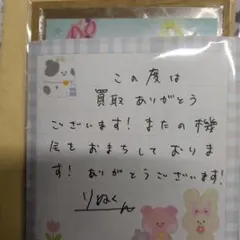 この度は
買取ありがとう
ございます！またの機
会をおまちしておりま
す！ありがとうございます！
りぬくん